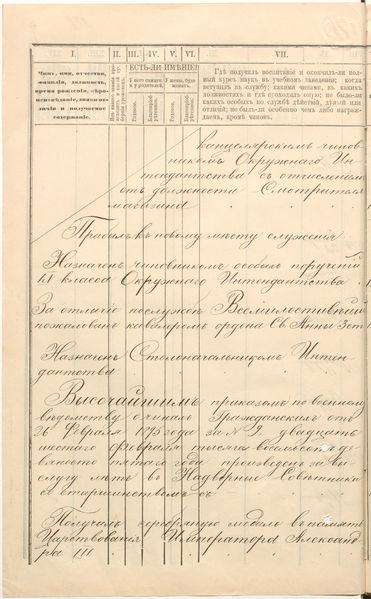 I.
II.
III.
IV.
V.
VI.
VII.
ЕСТЬ-ЛИ ИМѢНІЕ:
Чинъ, имя, отчество,
фамилія, должность,
время рожденія, вѣро-
исповѣданіе, знаки от-
личія и получаемое
содержаніе.
У него самаго
и у родителей.
У жены, буде
женатъ.
Родовое.
Благопріоб-
рѣтенное.
Родовое.
Благопріоб-
рѣтенное.
Гдѣ получилъ воспитаніе и окончилъ-ли пол-
ный курсъ наукъ въ учебномъ заведеніи; когда
вступилъ въ службу; какими чинами, въ какихъ
должностяхъ и гдѣ проходилъ оную; не было-ли
какихъ особыхъ по службѣ дѣяній или
отличій; не былъ-ли особенно чѣмъ либо награж-
даемъ, кромѣ чиновъ.
Канцелярскимъ чинов-
никомъ Окружнаго Ин-
тендантства съ отчисленіемъ
отъ должности Смотрителя
магазина
Прибылъ къ новому мѣсту служенія
Назначенъ чиновникомъ особыхъ порученій
VII класса Окружнаго Интендантства
За отличіе по службѣ Всемилостивѣйше
пожалованъ кавалеромъ ордена Св. Анны 3 ст
Назначенъ Столоначальникомъ Интен-
дантства
Высочайшимъ приказомъ по военному
вѣдомству о чинахъ Гражданскихъ отъ
26 Февраля 1895 года за № 9 двадцать
шестаго февраля тысяча восемьсотъ де-
вяносто пятаго года произведенъ за вы-
слугу лѣтъ въ Надворные Совѣтники
со старшинствомъ съ
Получилъ серебряную медаль въ память
Царствованія Императора Александ-
ра III